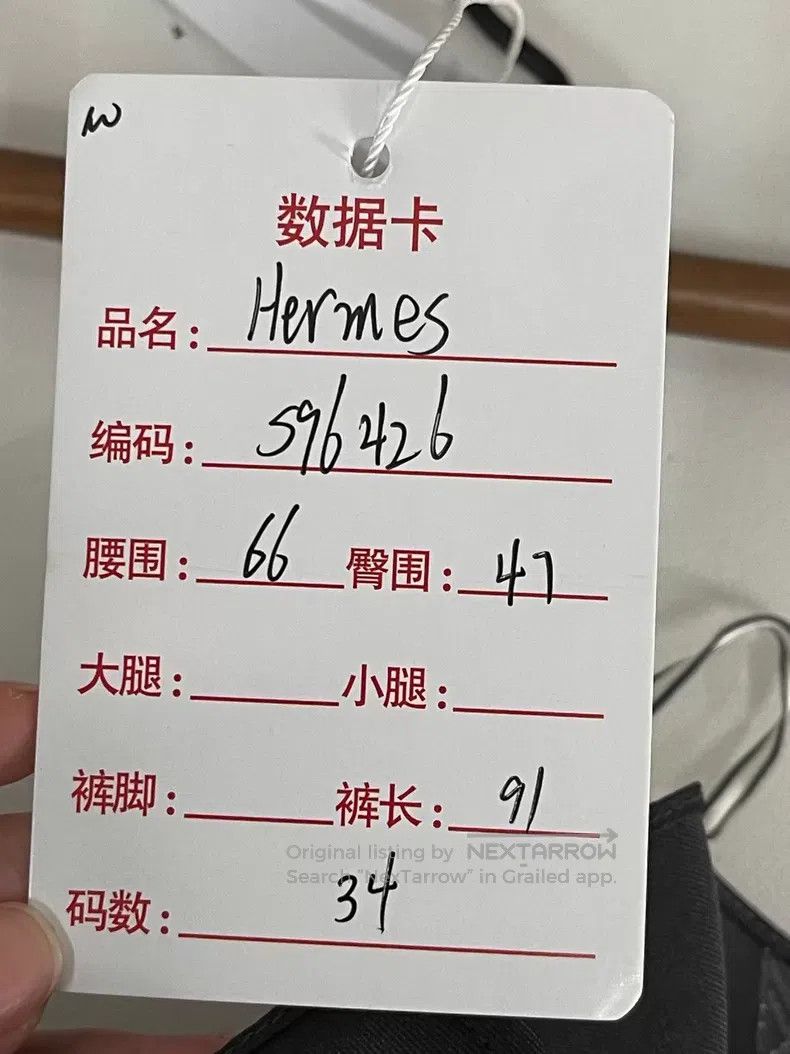 w
数据卡
品名: Hermes
编码: 596426
腰围: 66 臀围: 47
大腿: 小腿:
裤脚: 裤长: 91
Original listing by NEXTARROW
Search "NexTarrow" in Grailed app.
码数: 34